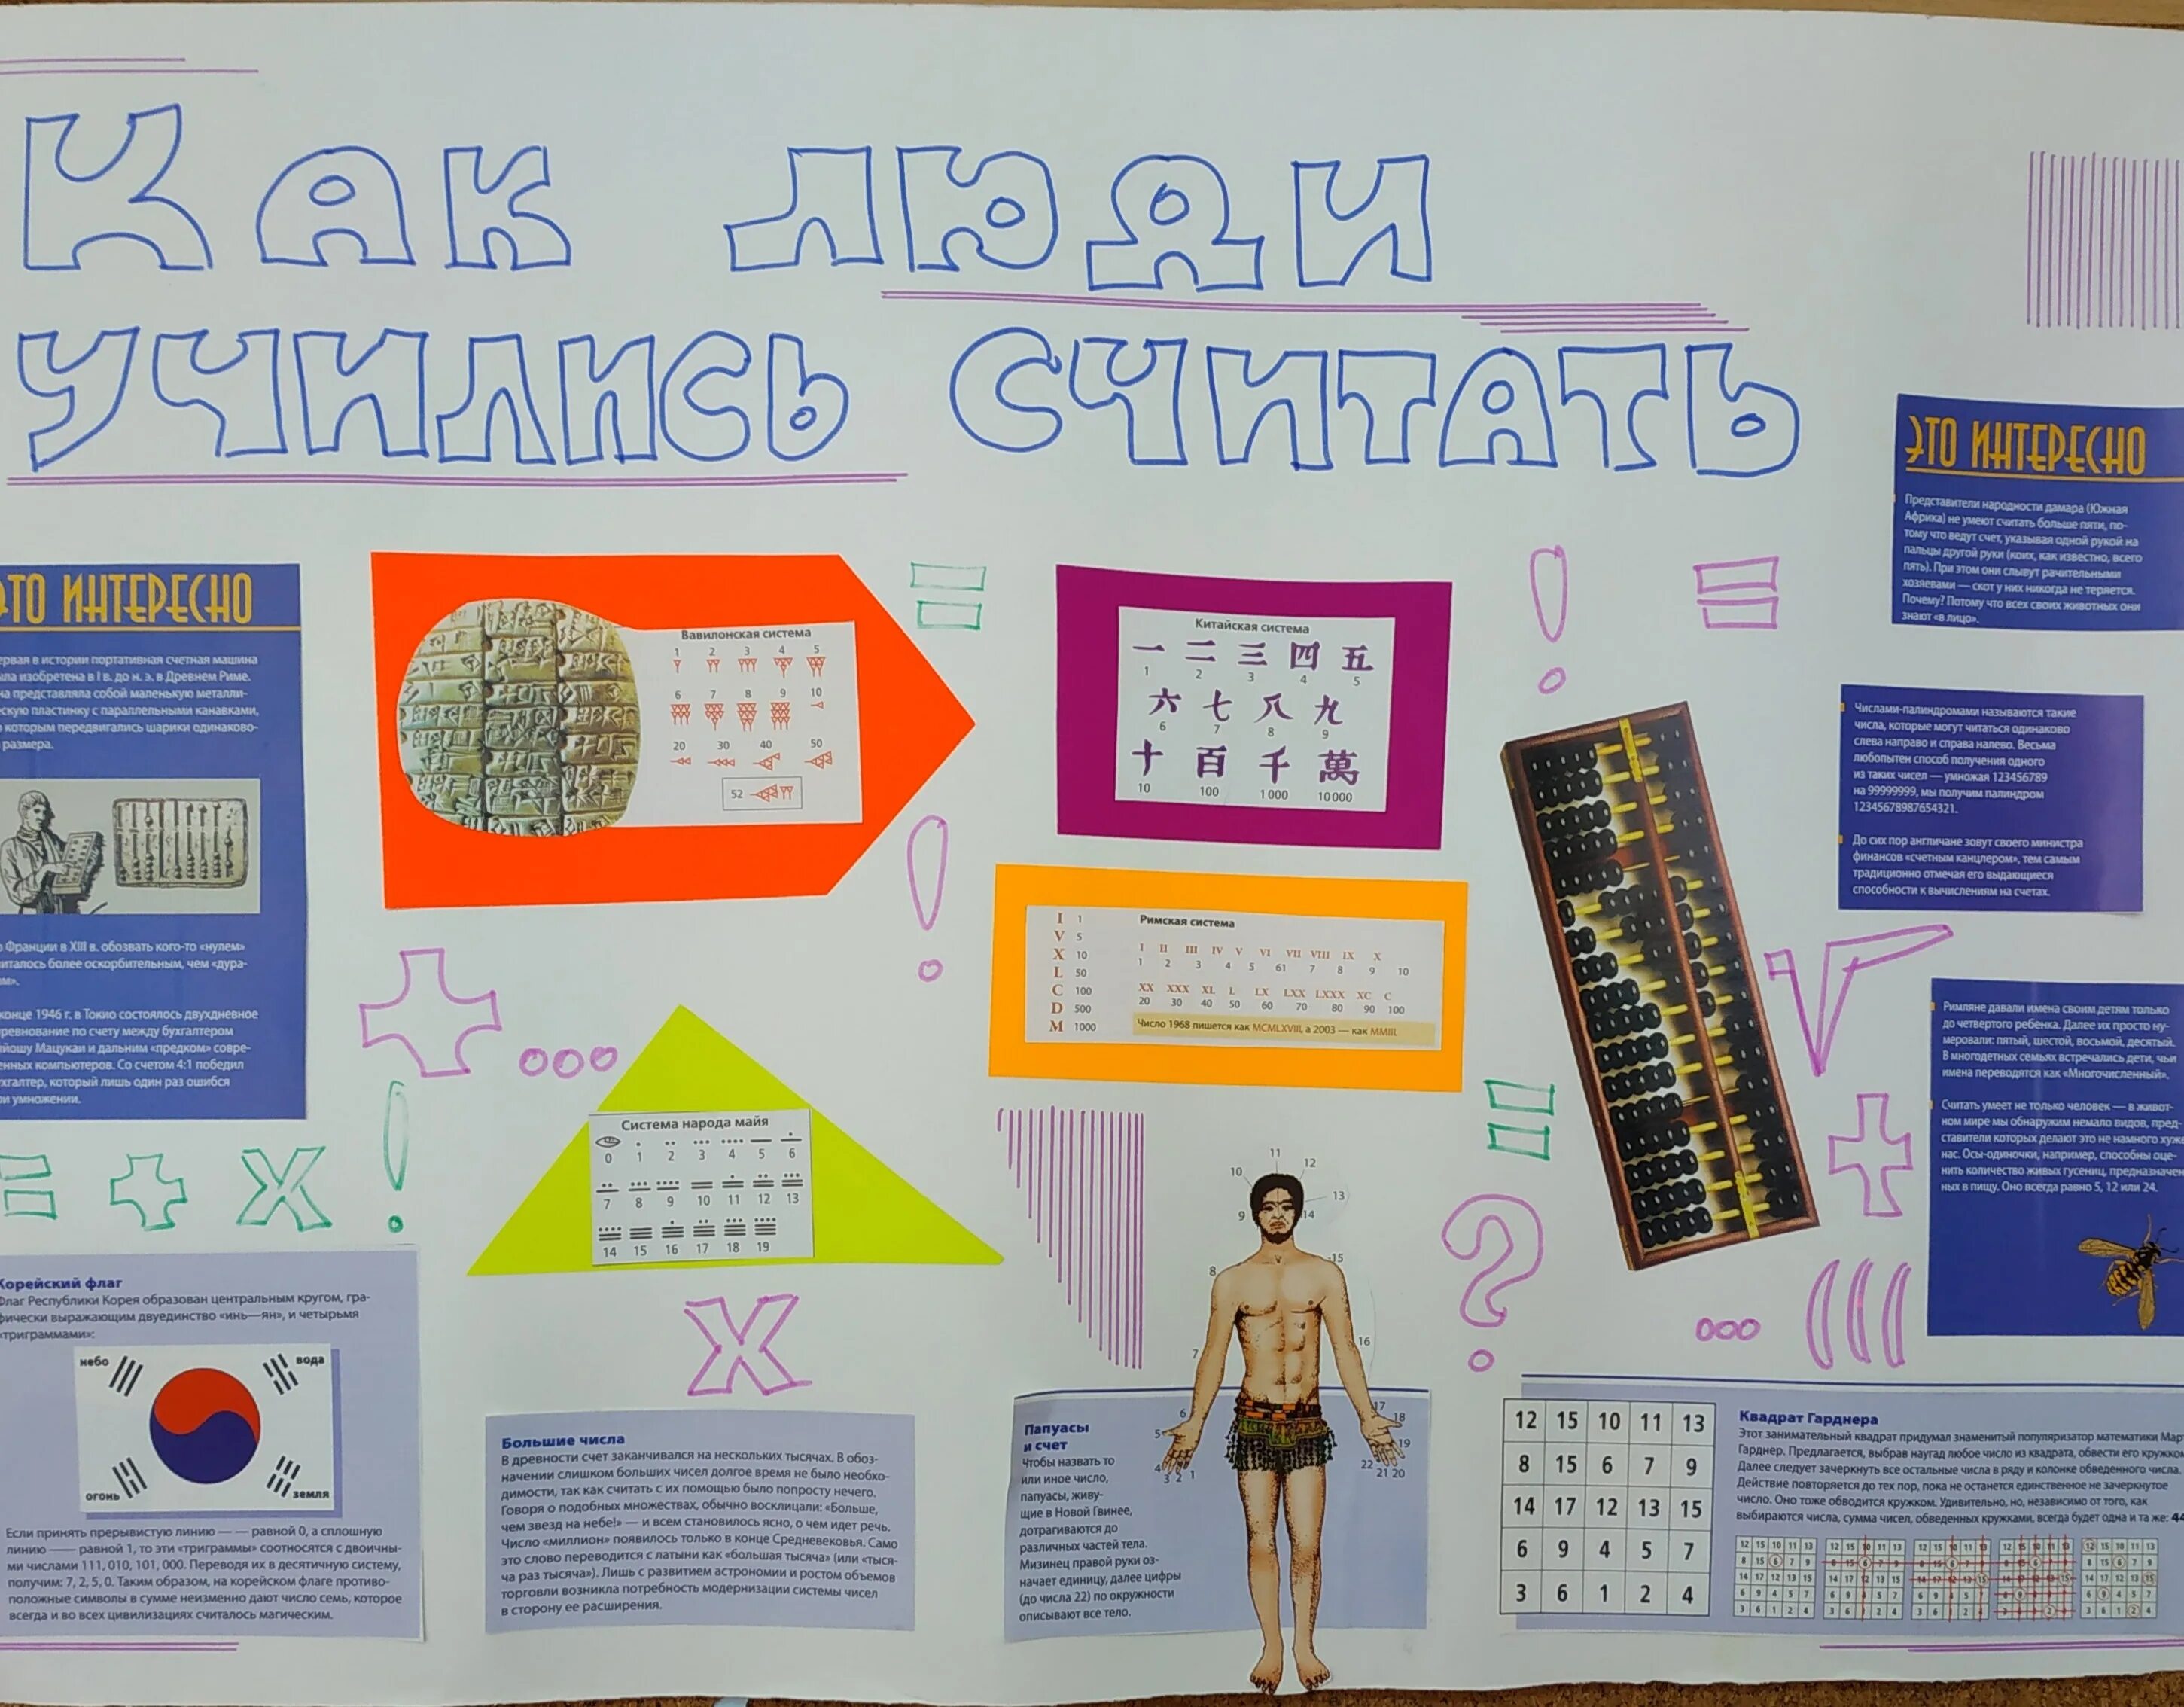 Как люди
учились считать
ЭТО ИНТЕРЕСНО
была изобретена в I в. до н. э. в Древнем Риме.
представляла собой маленькую металли-
пластинку с параллельными канавками,
которым передвигались шарики одинаково-
размера.
Франции в XIII в. обозвать кого-то «нулем»
более оскорбительным, чем «дура-
конце 1946 г. в Токио состоялось двухдневное
по счету между бухгалтером
Мацукаи и дальним «предком» совре-
компьютеров. Со счетом 4:1 победил
который лишь один раз ошибся
умножении.
Вавилонская система
1 2 3 4 5
6 7 8 9 10
20 30 40 50
52
Китайская система
一 二 三 四 五
1 2 3 4 5
六 七 八 九
6 7 8 9
十 百 千 萬
10 100 1 000 10 000
Римская система
I 1
V 5
X 10
L 50
C 100
D 500
M 1000
I II III IV V VI VII VIII IX X
1 2 3 4 5 61 7 8 9 10
XX XXX XL L LX LXX LXXX XC C
20 30 40 50 60 70 80 90 100
Число 1968 пишется как MCMLXVIII, а 2003 — как MMIII.
Система народа майя
0 1 2 3 4 5 6
7 8 9 10 11 12 13
14 15 16 17 18 19
ЭТО ИНТЕРЕСНО
Представители народности дамара (Южная
Африка) не умеют считать больше пяти, по-
тому что ведут счет, указывая одной рукой на
пальцы другой руки (коих, как известно, всего
пять). При этом они слывут рачительными
хозяевами — скот у них никогда не теряется.
Почему? Потому что всех своих животных они
знают «в лицо».
Числами-палиндромами называются такие
числа, которые могут читаться одинаково
слева направо и справа налево. Весьма
любопытен способ получения одного
из таких чисел — умножая 123456789
на 99999999, мы получим палиндром
12345678987654321.
До сих пор англичане зовут своего министра
финансов «счетным канцлером», тем самым
традиционно отмечая его выдающиеся
способности к вычислениям на счетах.
Римляне давали имена своим детям только
до четвертого ребенка. Далее их просто ну-
меровали: пятый, шестой, восьмой, десятый.
В многодетных семьях встречались дети, чьи
имена переводятся как «Многочисленный».
Считать умеет не только человек — в живот-
ном мире мы обнаружим немало видов, пред-
ставители которых делают это не намного хуже
нас. Осы-одиночки, например, способны оце-
нить количество живых гусениц, предназначен-
ных в пищу. Оно всегда равно 5, 12 или 24.
= + × !
= ! = + ооо √ ? (((
Корейский флаг
Флаг Республики Корея образован центральным кругом, гра-
фически выражающим двуединство «инь—ян», и четырьмя
«триграммами»:
небо вода
огонь земля
Если принять прерывистую линию — — равной 0, а сплошную
линию —— равной 1, то эти «триграммы» соотносятся с двоичны-
ми числами 111, 010, 101, 000. Переводя их в десятичную систему,
получим: 7, 2, 5, 0. Таким образом, на корейском флаге противо-
положные символы в сумме неизменно дают число семь, которое
всегда и во всех цивилизациях считалось магическим.
Большие числа
В древности счет заканчивался на нескольких тысячах. В обоз-
начении слишком больших чисел долгое время не было необхо-
димости, так как считать с их помощью было попросту нечего.
Говоря о подобных множествах, обычно восклицали: «Больше,
чем звезд на небе!» — и всем становилось ясно, о чем идет речь.
Число «миллион» появилось только в конце Средневековья. Само
это слово переводится с латыни как «большая тысяча» (или «тыся-
ча раз тысяча»). Лишь с развитием астрономии и ростом объемов
торговли возникла потребность модернизации системы чисел
в сторону ее расширения.
Папуасы
и счет
Чтобы назвать то
или иное число,
папуасы, живу-
щие в Новой Гвинее,
дотрагиваются до
различных частей тела.
Мизинец правой руки оз-
начает единицу, далее цифры
(до числа 22) по окружности
описывают все тело.
11
10 12
13
9 14
15
8
16
7
6 17
5 18
4 19
3 2 1 22 21 20
12 15 10 11 13
8 15 6 7 9
14 17 12 13 15
6 9 4 5 7
3 6 1 2 4
Квадрат Гарднера
Этот занимательный квадрат придумал знаменитый популяризатор математики
Гарднер. Предлагается, выбрав наугад любое число из квадрата, обвести его кружком.
Далее следует зачеркнуть все остальные числа в ряду и колонке обведенного числа.
Действие повторяется до тех пор, пока не останется единственное не зачеркнутое
число. Оно тоже обводится кружком. Удивительно, но, независимо от того, как
выбираются числа, сумма чисел, обведенных кружками, всегда будет одна и та же: 44